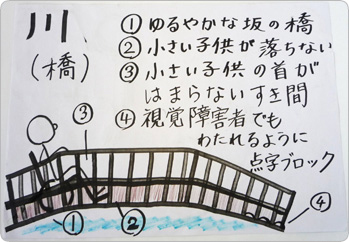 川
(橋)
① ゆるやかな坂の橋
② 小さい子供が落ちない
③ 小さい子供の首が
はまらないすき間
④ 視覚障害者でも
わたれるように
点字ブロック
③
① ② ④